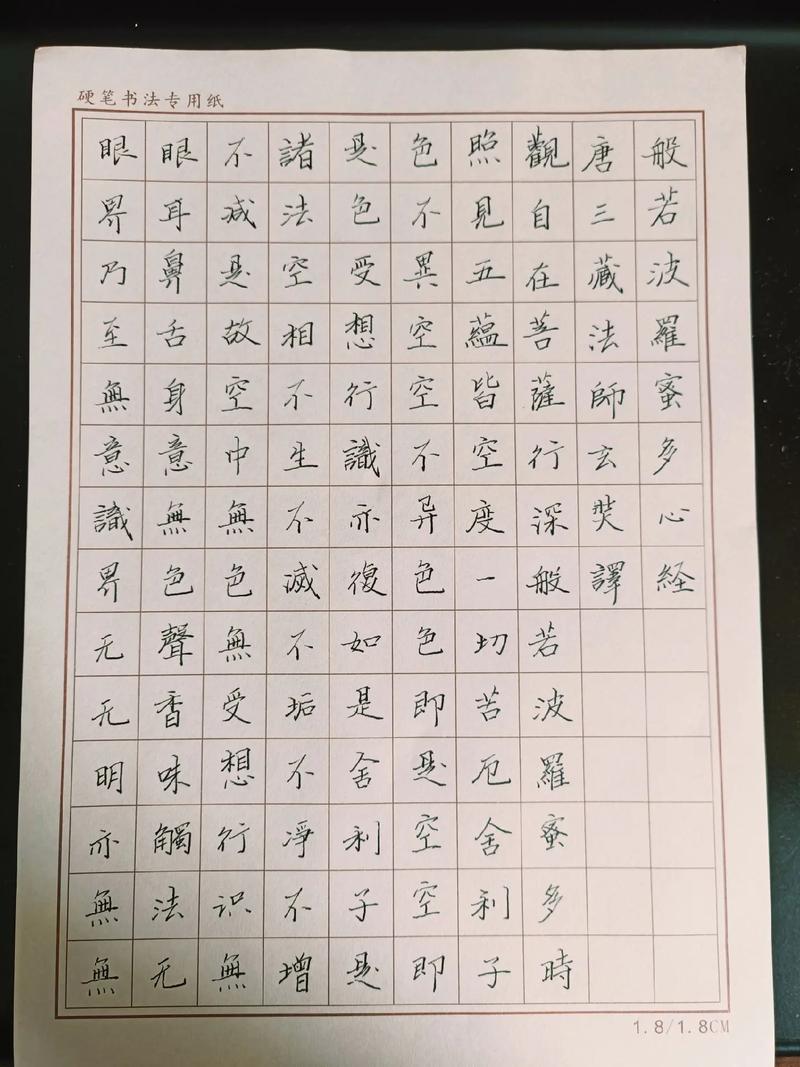 硬笔书法专用纸
般若波羅蜜多心経
唐三藏法師玄奘譯
觀自在菩薩行深般若波羅蜜多時
照見五蘊皆空度一切苦厄舍利子
色不異空空不异色色即是空空即
是色受想行識亦復如是舍利子是
諸法空相不生不滅不垢不淨不增
不减是故空中無色無受想行识無
眼耳鼻舌身意無色聲香味觸法无
眼界乃至無意識界无无明亦無無
1.8/1.8CM